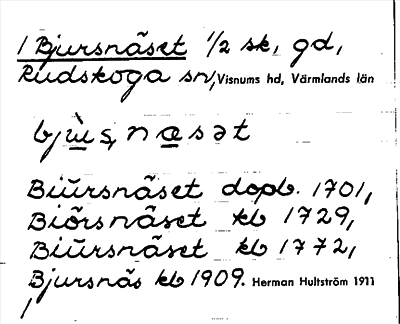 1 Bjursnäset 1/2 sk, gd,
Rudskoga sn, Visnums hd, Värmlands län
bjùs, næsət
Biūrsnäset dopb. 1701,
Biörsnäset kb 1729,
Biūrsnäset kb 1772,
Bjursnäs kb 1909. Herman Hultström 1911